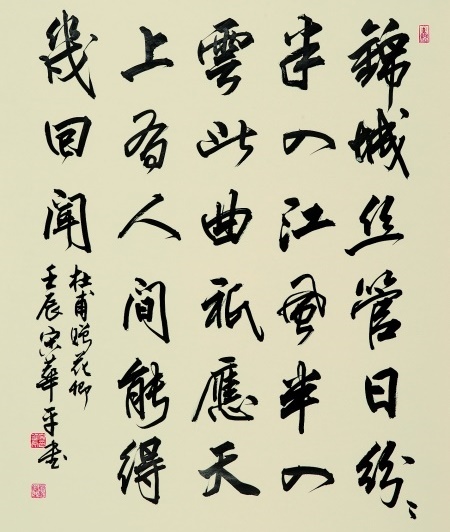 錦城丝管日紛〻
半入江風半入
雲此曲祇應天
上有人間能得
幾回聞
杜甫贈花卿
壬辰宋華平書